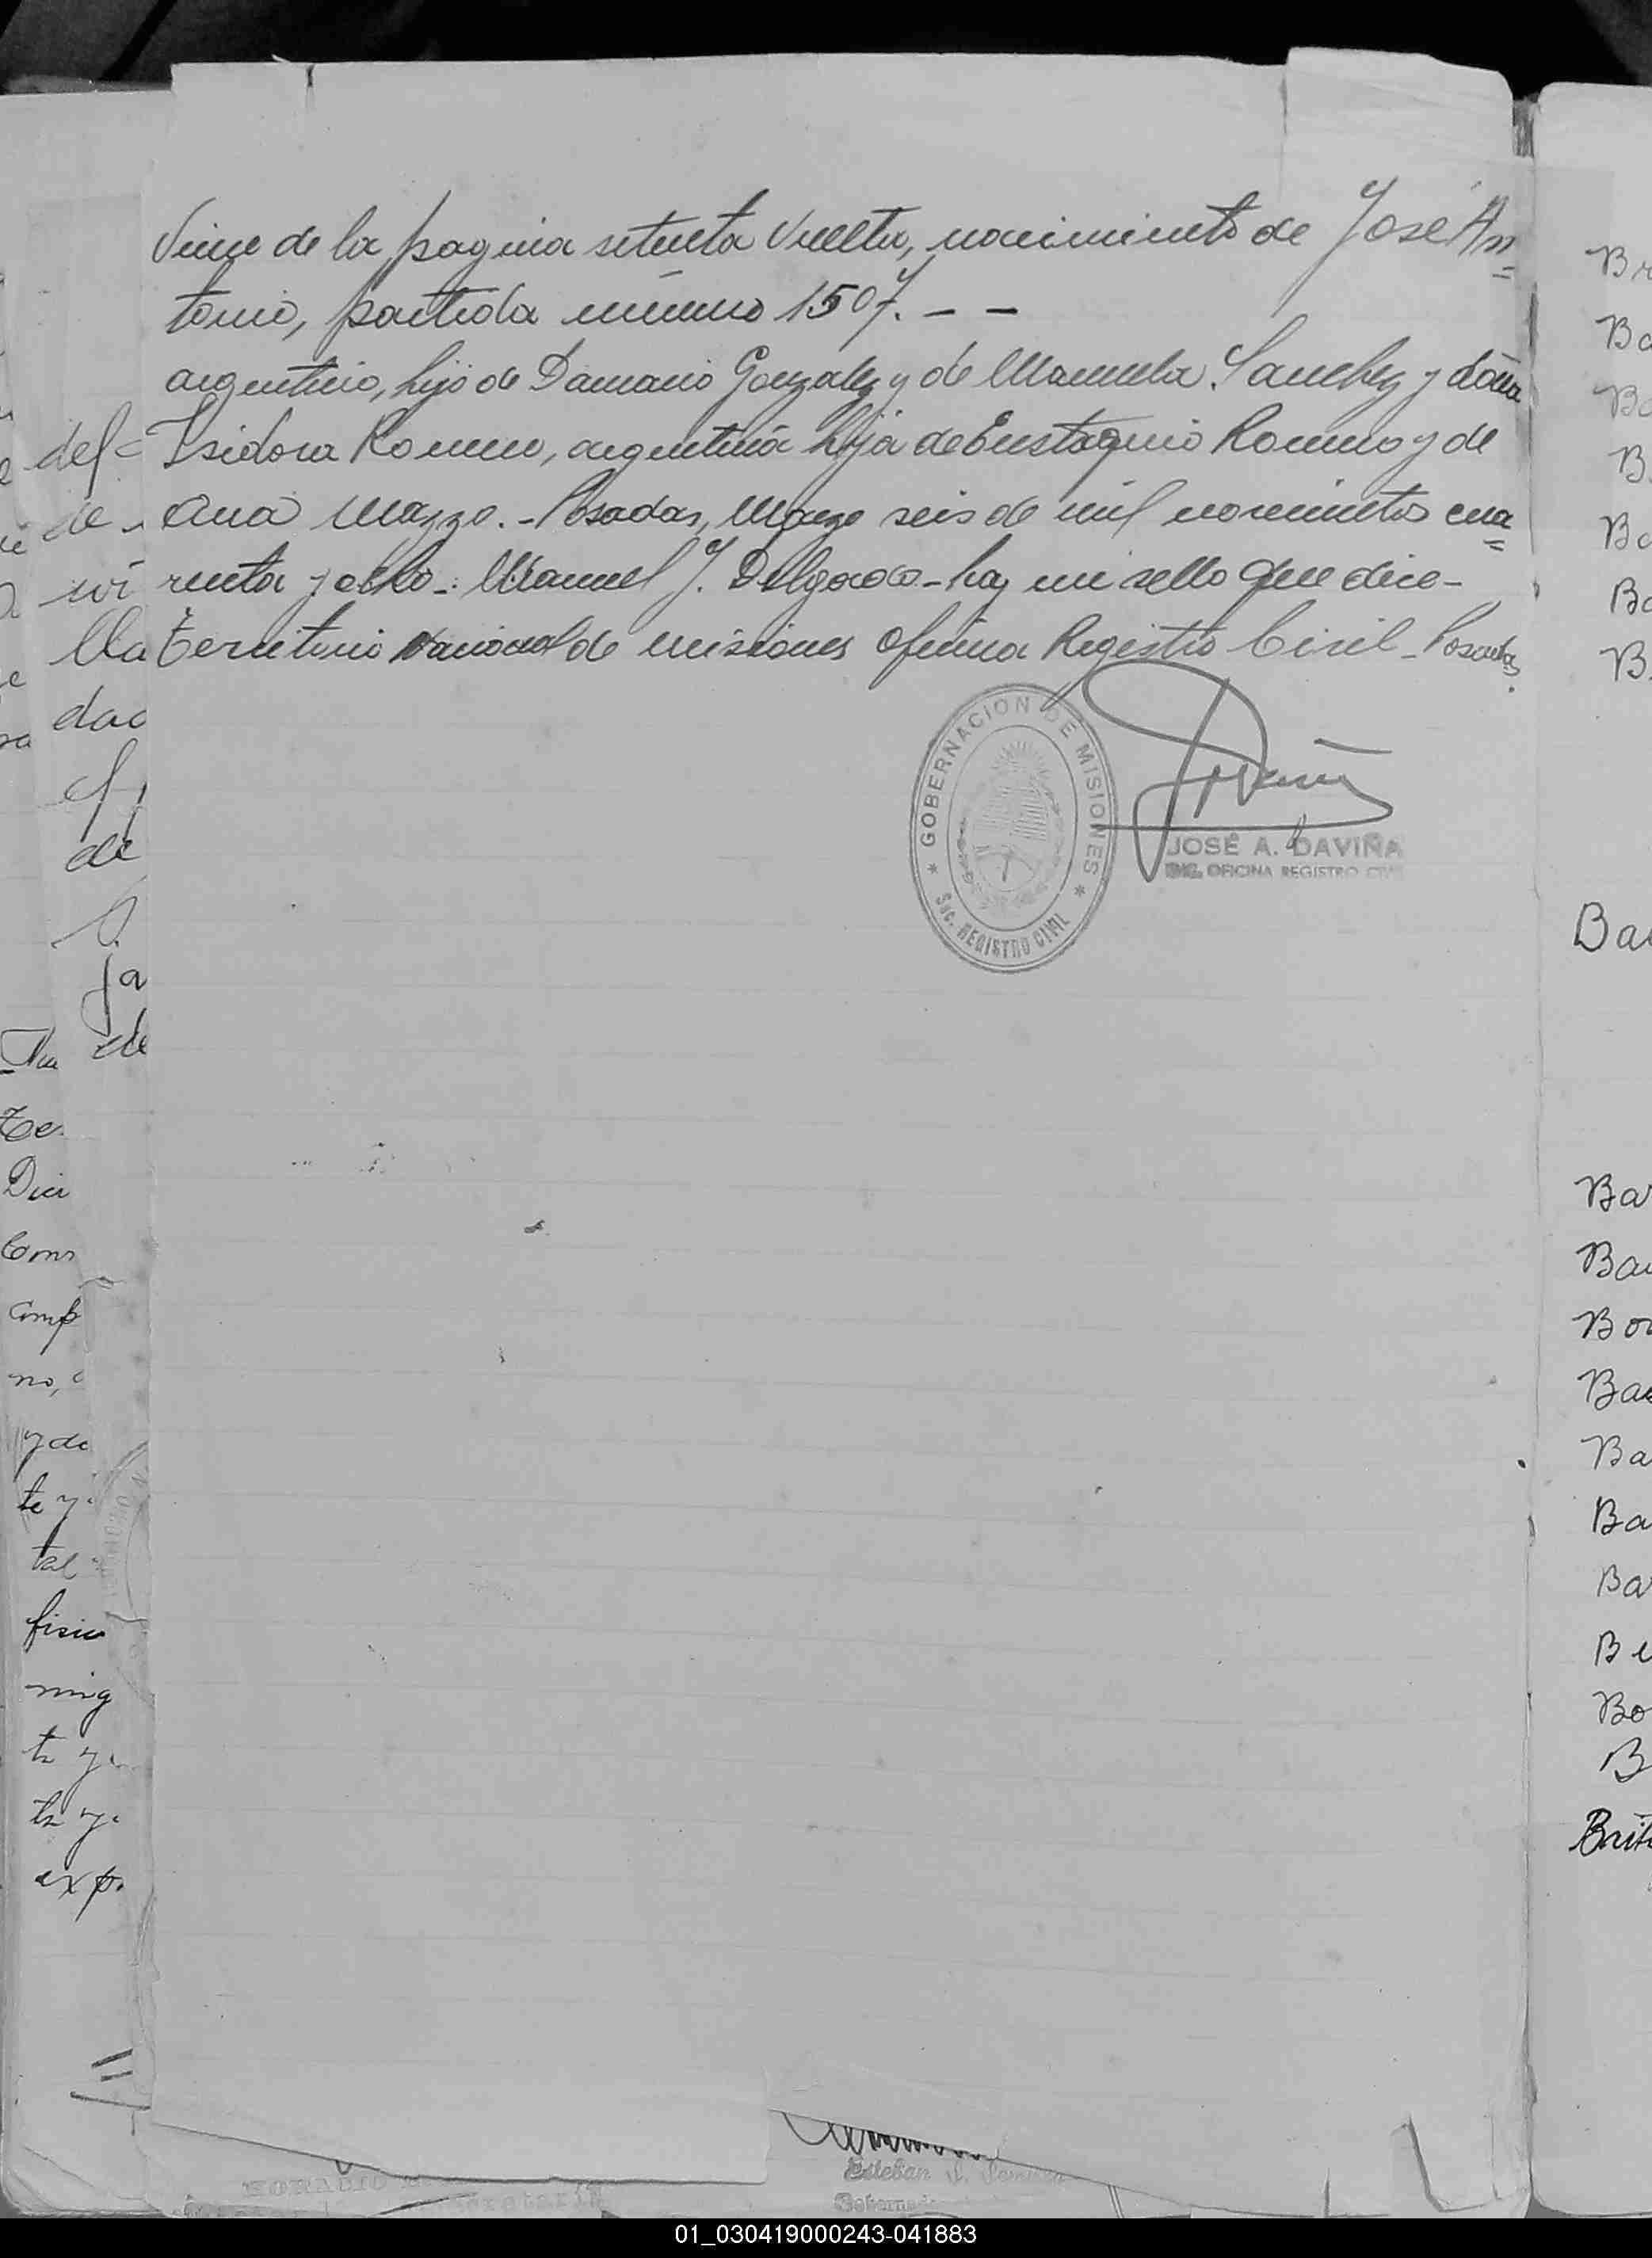 Viene de la pagina setenta vuelta, nacimiento de José An=
tonio, partida número 1507. — —
argentino, hijo de Damacio Gonzalez y de Manuela Sanchez y doña
Isidora Romero, argentina hija de Eustaquio Romero y de
Ana Mazzo. - Posadas, Marzo seis de mil novecientos cua=
renta y ocho -: Manuel J. Delgado - hay un sello que dice -
Territorio Nacional de Misiones Oficina Registro Civil - Posadas.
GOBERNACION DE MISIONES
Sec. REGISTRO CIVIL
JOSÉ A. DAVIÑA
ENC. OFICINA REGISTRO CIVIL
def=
de
lla
dad
de
ja
de
Te
Dici
Cons
Comp
no,
y de
te y
tal
ning
exp.
Br
Ba
Ba
B
Ba
Ba
B
Ba
Ba
Bo
Ba
Ba
Ba
Be
Bo
B
Brit
Esteban
01_030419000243-041883